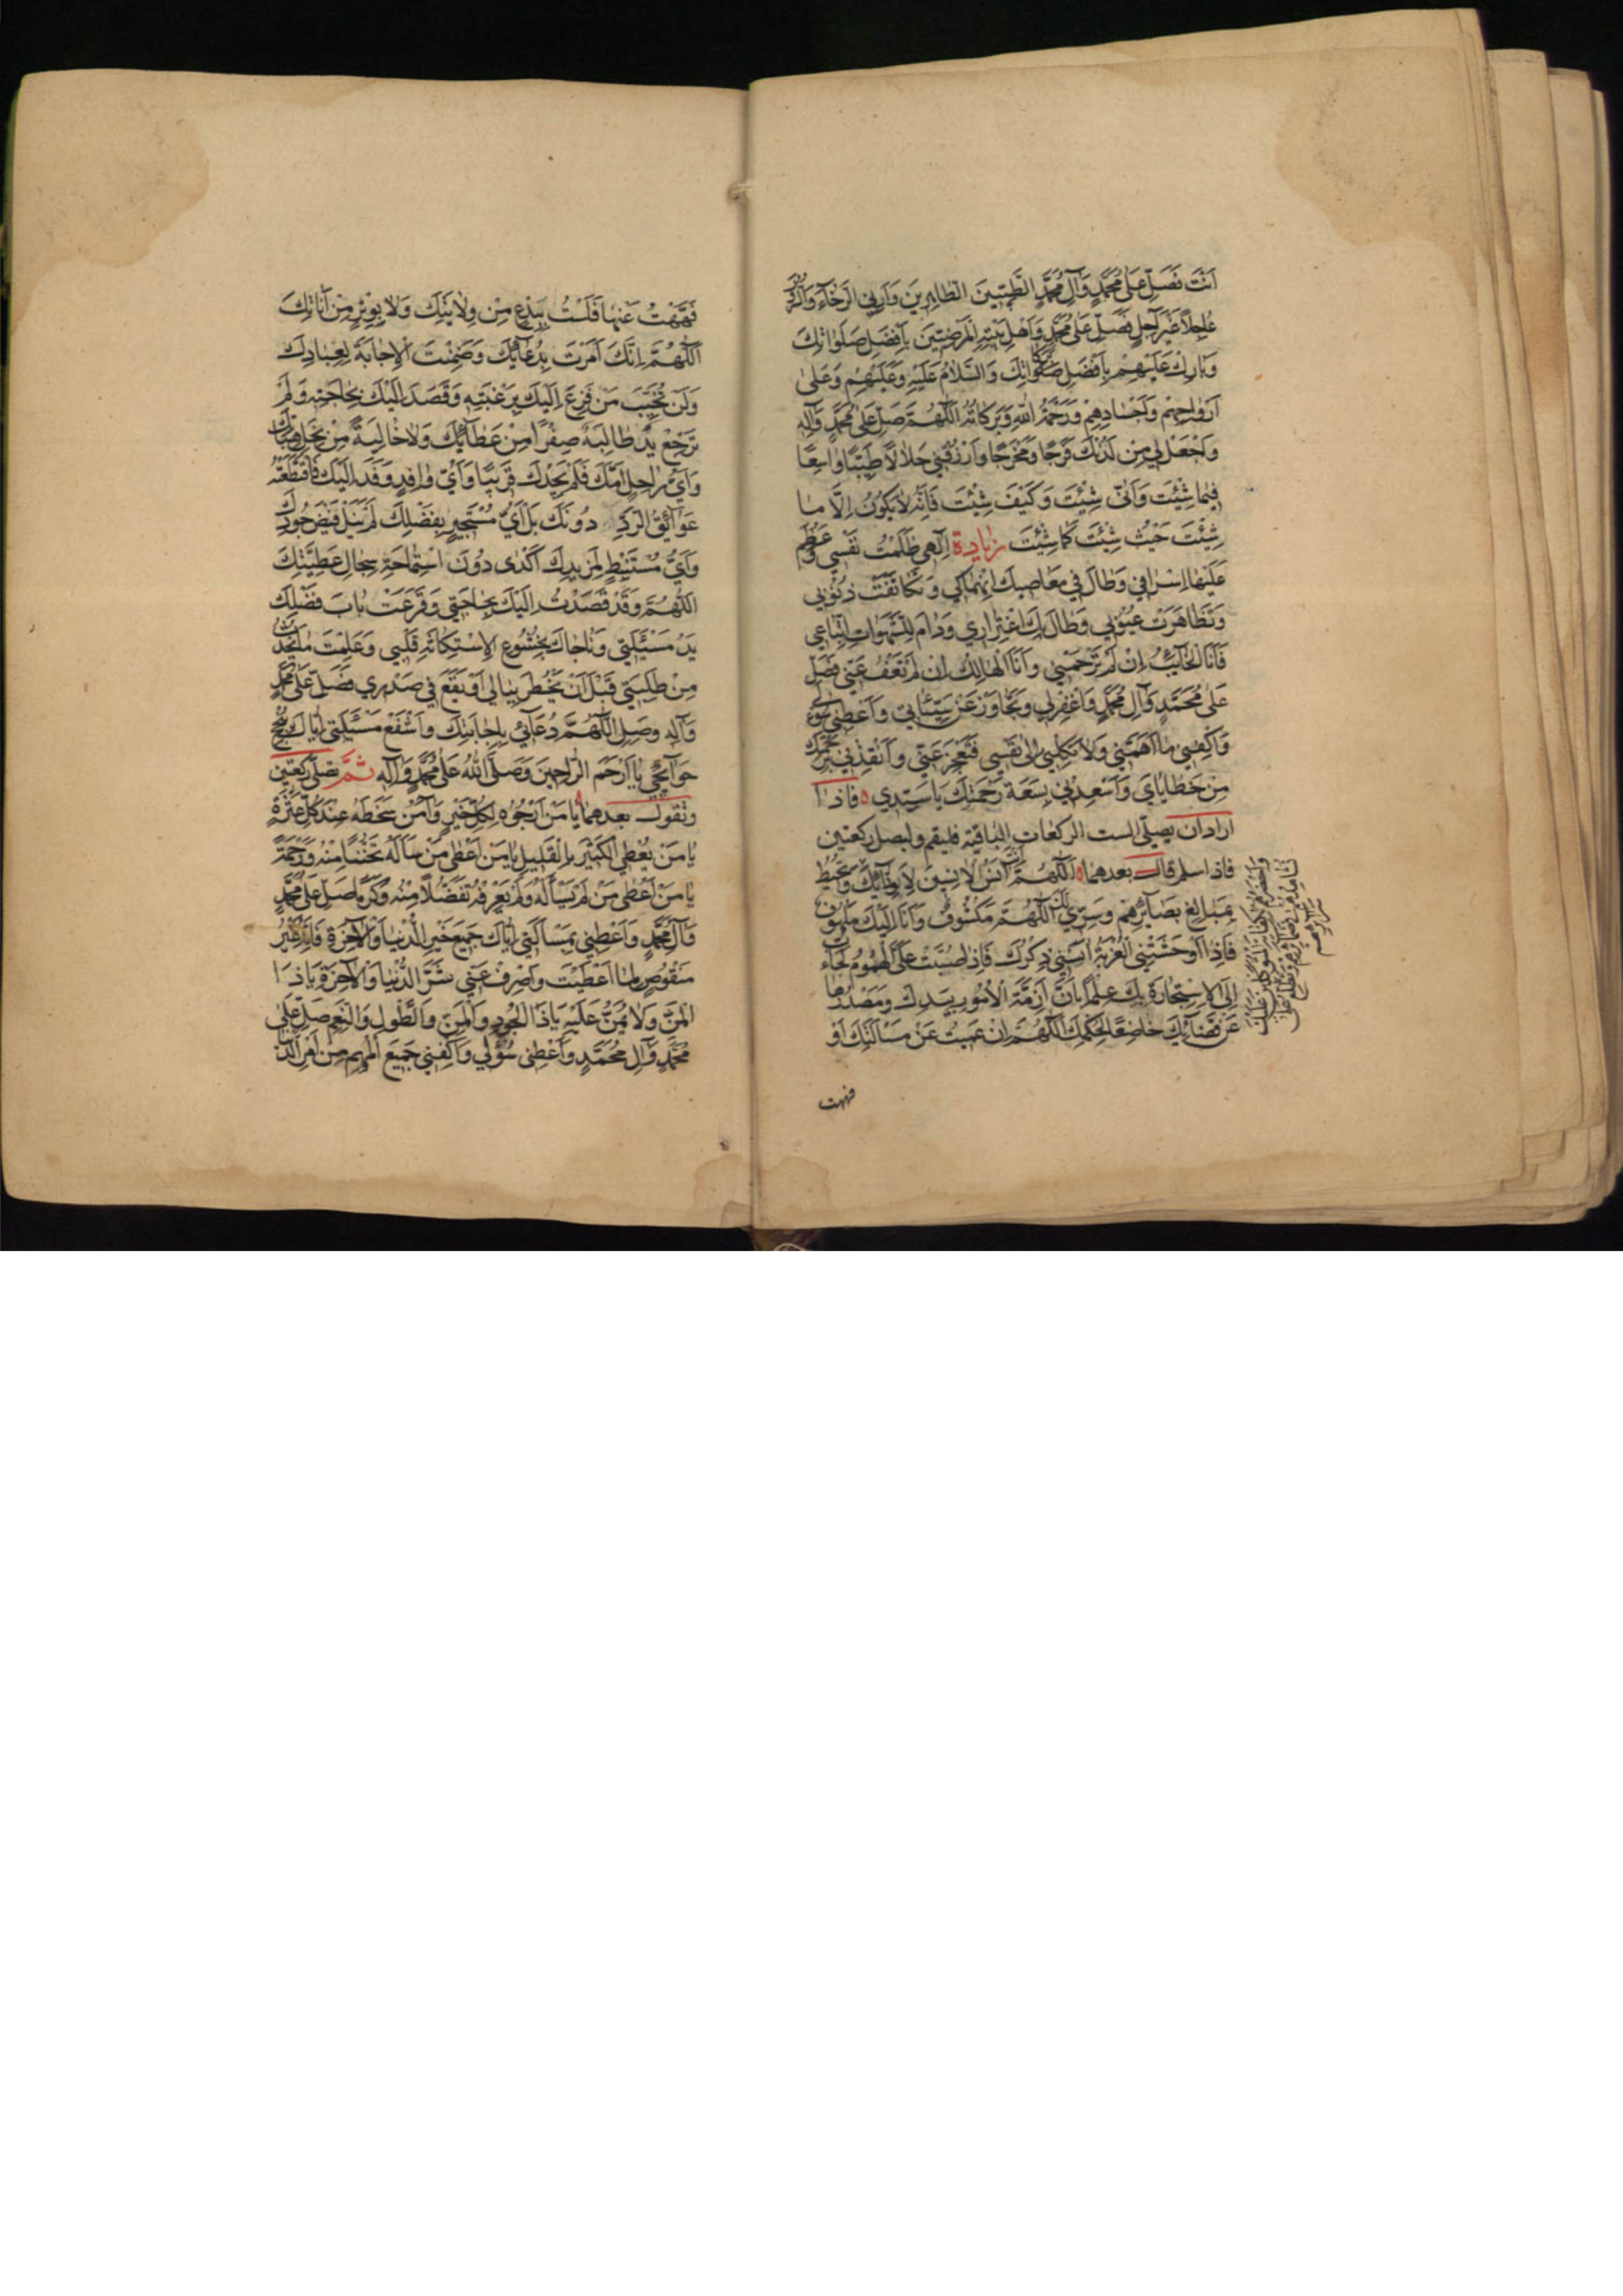 اَنْتَ فَصَلِّ عَلىٰ مُحَمَّدٍ وَآلِ مُحَمَّدٍ الطَّيِّبينَ الطّاهِرينَ وَاَرِنِي الرَّخٰاءَ وَالسُّرُورَ
عٰاجِلاً غَيْرَ آجِلٍ فَصَلِّ عَلىٰ مُحَمَّدٍ وَاَهْلِ بَيْتِهِ الْمَرْضِيّينَ بِاَفْضَلِ صَلَوٰاتِكَ
وَبٰارِكْ عَلَيْهِمْ بِاَفْضَلِ بَرَكٰاتِكَ وَالسَّلاٰمُ عَلَيْهِ وَعَلَيْهِمْ وَعَلىٰ
اَرْوٰاحِهِمْ وَاَجْسٰادِهِمْ وَرَحْمَةُ اللّٰهِ وَبَرَكاتُهُ اَللّٰهُمَّ صَلِّ عَلىٰ مُحَمَّدٍ وَآلِهِ
وَاجْعَلْ لِي مِنْ لَدُنْكَ فَرَجًا وَمَخْرَجًا وَارْزُقْنِي حَلاٰلاً طَيِّبًا وٰاسِعًا
فِيمٰا شِئْتَ وَاَنّىٰ شِئْتَ وَكَيْفَ شِئْتَ فَاِنَّهُ لاٰ يَكُونُ اِلَّا مٰا
شِئْتَ حَيْثُ شِئْتَ كَمٰا شِئْتَ زيادة اِلٰهِي ظَلَمْتُ نَفْسِي وَعَظُمَ
عَلَيْهٰا اِسْرٰافِي وَطٰالَ فِي مَعٰاصِيكَ اِنْهِمٰاكِي وَتَكٰاثَفَتْ ذُنُوبِي
وَتَظٰاهَرَتْ عُيُوبِي وَطٰالَ بِكَ اغْتِرٰارِي وَدٰامَ لِلشَّهَوٰاتِ اتِّبٰاعِي
فَاَنَا الْخٰائِبُ اِنْ لَمْ تَرْحَمْنِي وَاَنَا الْهٰالِكُ اِنْ لَمْ تَعْفُ عَنِّي فَصَلِّ
عَلىٰ مُحَمَّدٍ وَآلِ مُحَمَّدٍ وَاغْفِرْ لِي وَتَجٰاوَزْ عَنْ سَيِّئٰاتِي وَاَعْطِنِي سُؤْلِي
وَاكْفِنِي مٰا اَهَمَّنِي وَلاٰ تَكِلْنِي اِلىٰ نَفْسِي فَتَعْجِزَ عَنِّي وَاَنْقِذْنِي بِرَحْمَتِكَ
مِنْ خَطٰايٰايَ وَاَسْعِدْنِي بِسَعَةِ رَحْمَتِكَ يٰا سَيِّدِي ه فاذا
اراد ان يصلّي الست الركعات الباقية فليقم وليصل ركعتين
فاذا سلم قال بعدهما ه اَللّٰهُمَّ اَنْتَ آنَسُ الْاٰنِسِينَ لِاَوِدّٰائِكَ وَتُحِيطُ
بِمَبٰالِغِ بَصٰائِرِهِمْ وَسِرِّي لَكَ اَللّٰهُمَّ مَكْشُوفٌ وَاَنَا اِلَيْكَ مَلْهُوفٌ
فَاِذٰا اَوْحَشَتْنِي الْغُرْبَةُ آنَسَنِي ذِكْرُكَ فَاِذٰا صُبَّتْ عَلَيَّ الْهُمُومُ لَجَأْتُ
اِلَى الْاِسْتِجٰارَةِ بِكَ عِلْمًا بِاَنَّ اَزِمَّةَ الْاُمُورِ بِيَدِكَ وَمَصْدَرُهٰا
عَنْ قَضٰائِكَ خٰاضِعًا لِحُكْمِكَ اَللّٰهُمَّ اِنْ عَمِيتُ عَنْ مَسْاَلَتِكَ اَوْ
فههت
وَاَحْضَرُهُمْ لِكِفٰايَةِ الْمُتَوَكِّلِينَ عَلَيْكَ
تُشٰاهِدُهُمْ فِي ضَمٰائِرِهِمْ وَتَطَّلِعُ عَلىٰ
سَرٰائِرِهِمْ
فَهَهْتُ عَنْهٰا فَلَسْتُ بِبِدْعٍ مِنْ وِلاٰيَتِكَ وَلاٰ بِوِتْرٍ مِنْ اَنٰاتِكَ
اَللّٰهُمَّ اِنَّكَ اَمَرْتَ بِدُعٰائِكَ وَضَمِنْتَ الْاِجٰابَةَ لِعِبٰادِكَ
وَلَنْ تُخَيِّبَ مَنْ فَزِعَ اِلَيْكَ بِرَغْبَتِهِ وَقَصَدَ اِلَيْكَ بِحٰاجَتِهِ وَلَمْ
تَرْجِعْ يَدٌ طٰالِبَةٌ صِفْرًا مِنْ عَطٰائِكَ وَلاٰ خٰالِيَةً مِنْ نِحَلِ هِبٰاتِكَ
وَاَيُّ رٰاحِلٍ اَمَّكَ فَلَمْ يَجِدْكَ قَرِيبًا وَاَيُّ وٰافِدٍ وَفَدَ اِلَيْكَ فَاقْتَطَعَتْهُ
عَوٰائِقُ الرَّدِّ دُونَكَ بَلْ اَيُّ مُسْتَجِيرٍ بِفَضْلِكَ لَمْ يَنَلْ فَيْضَ جُودِكَ
وَاَيُّ مُسْتَنْبِطٍ لِمَزِيدِكَ اَكْدىٰ دُونَ اسْتِمٰاحَةِ سِجٰالِ عَطِيَّتِكَ
اَللّٰهُمَّ وَقَدْ قَصَدْتُ اِلَيْكَ بِحٰاجَتِي وَقَرَعَتْ بٰابَ فَضْلِكَ
يَدُ مَسْئَلَتِي وَنٰاجٰاكَ بِخُشُوعِ الْاِسْتِكٰانَةِ قَلْبِي وَعَلِمْتَ مٰا يَحْدُثُ
مِنْ طَلِبَتِي قَبْلَ اَنْ يَخْطُرَ بِبٰالِي اَوْ يَقَعَ فِي صَدْرِي فَصَلِّ عَلىٰ مُحَمَّدٍ
وَآلِهِ وَصِلِ اللّٰهُمَّ دُعٰائِي بِاِجٰابَتِكَ وَاشْفَعْ مَسْئَلَتِي اِيّٰاكَ بِنُجْحِ
حَوٰائِجِي يٰا اَرْحَمَ الرّٰاحِمِينَ وَصَلَّى اللّٰهُ عَلىٰ مُحَمَّدٍ وَآلِهِ ثمّ تصلّي ركعتين
وتقول بعدهما ه يٰا مَنْ اَرْجُوهُ لِكُلِّ خَيْرٍ وَآمَنُ سَخَطَهُ عِنْدَ كُلِّ عَثْرَةٍ
يٰا مَنْ يُعْطِي الْكَثِيرَ بِالْقَلِيلِ يٰا مَنْ اَعْطىٰ مَنْ سَاَلَهُ تَحَنُّنًا مِنْهُ وَرَحْمَةً
يٰا مَنْ اَعْطىٰ مَنْ لَمْ يَسْاَلْهُ وَلَمْ يَعْرِفْهُ تَفَضُّلاً مِنْهُ وَكَرَمًا صَلِّ عَلىٰ مُحَمَّدٍ
وَآلِ مُحَمَّدٍ وَاَعْطِنِي بِمَسْاَلَتِي اِيّٰاكَ جَمِيعَ خَيْرِ الدُّنْيٰا وَالْآخِرَةِ فَاِنَّهُ غَيْرُ
مَنْقُوصٍ لِمٰا اَعْطَيْتَ وَاصْرِفْ عَنِّي شَرَّ الدُّنْيٰا وَالْآخِرَةِ يٰا ذَا
الْمَنِّ وَلاٰ يُمَنُّ عَلَيْهِ يٰا ذَا الْجُودِ وَالْمَنِّ وَالطَّوْلِ وَالنِّعَمِ صَلِّ عَلىٰ
مُحَمَّدٍ وَآلِ مُحَمَّدٍ وَاَعْطِنِي سُؤْلِي وَاكْفِنِي جَمِيعَ الْمُهِمِّ مِنْ اَمْرِ الدُّنْيٰا